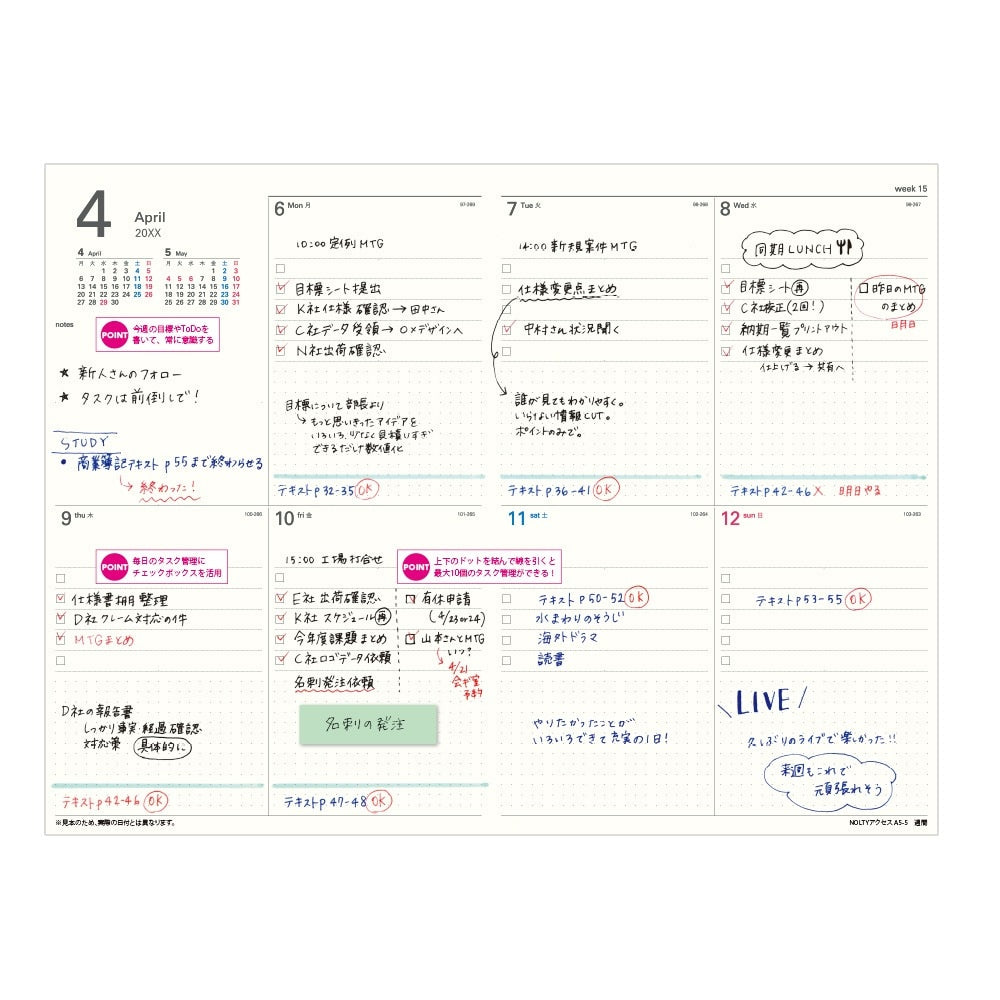 4
April
20XX
4 April
月 火 水 木 金 土 日
1 2 3 4 5
6 7 8 9 10 11 12
13 14 15 16 17 18 19
20 21 22 23 24 25 26
27 28 29 30
5 May
月 火 水 木 金 土 日
1 2 3
4 5 6 7 8 9 10
11 12 13 14 15 16 17
18 19 20 21 22 23 24
25 26 27 28 29 30 31
notes
POINT
今週の目標やToDoを
書いて、常に意識する
★ 新人さんのフォロー
★ タスクは前倒しで!
STUDY
• 商業簿記テキスト p55まで終わらせる
→ 終わった!
week 15
6 Mon 月
97-269
10:00 定例MTG
目標シート提出
K社仕様 確認 → 田中さん
C社データ受領 → ○×デザインへ
N社出荷確認
目標について部長より
→ もっと思いきったアイデアを
いろいろ、少なく見積りすぎ
できるだけ数値化
テキストp32-35 OK
7 Tue 火
98-268
14:00 新規案件MTG
仕様変更点まとめ
中村さん状況聞く
誰が見てもわかりやすく。
いらない情報CUT。
ポイントのみで。
テキストp36-41 OK
8 Wed 水
99-267
同期LUNCH
目標シート 再
C社校正(2回!)
納期一覧プリントアウト
仕様変更まとめ
仕上げる → 共有へ
昨日のMTG
のまとめ
明日
テキストp42-46 × 明日やる
9 thu 木
100-266
POINT
毎日のタスク管理に
チェックボックスを活用
仕様書棚整理
D社クレーム対応の件
MTGまとめ
D社の報告書
しっかり事実・経過確認
対応策 具体的に
テキストp42-46 OK
10 fri 金
101-265
15:00 工場打合せ
POINT
上下のドットを結んで線を引くと
最大10個のタスク管理ができる!
E社出荷確認
K社スケジュール 再
今年度課題まとめ
C社ロゴデータ依頼
名刺発注依頼
有休申請
(4/23or24)
山本さんとMTG
いつ?
4/21
会ギ室
予約
名刺の発注
テキストp47-48 OK
11 sat 土
102-264
テキストp50-52 OK
水まわりのそうじ
海外ドラマ
読書
やりたかったことが
いろいろできて充実の1日!
12 sun 日
103-263
テキストp53-55 OK
LIVE
久しぶりのライブで楽しかった!!
来週もこれで
頑張れそう
※見本のため、実際の日付とは異なります。
NOLTYアクセスA5-5 週間